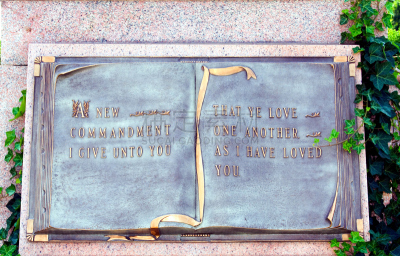 A NEW
COMMANDMENT
I GIVE UNTO YOU
THAT YE LOVE
ONE ANOTHER
AS I HAVE LOVED
YOU